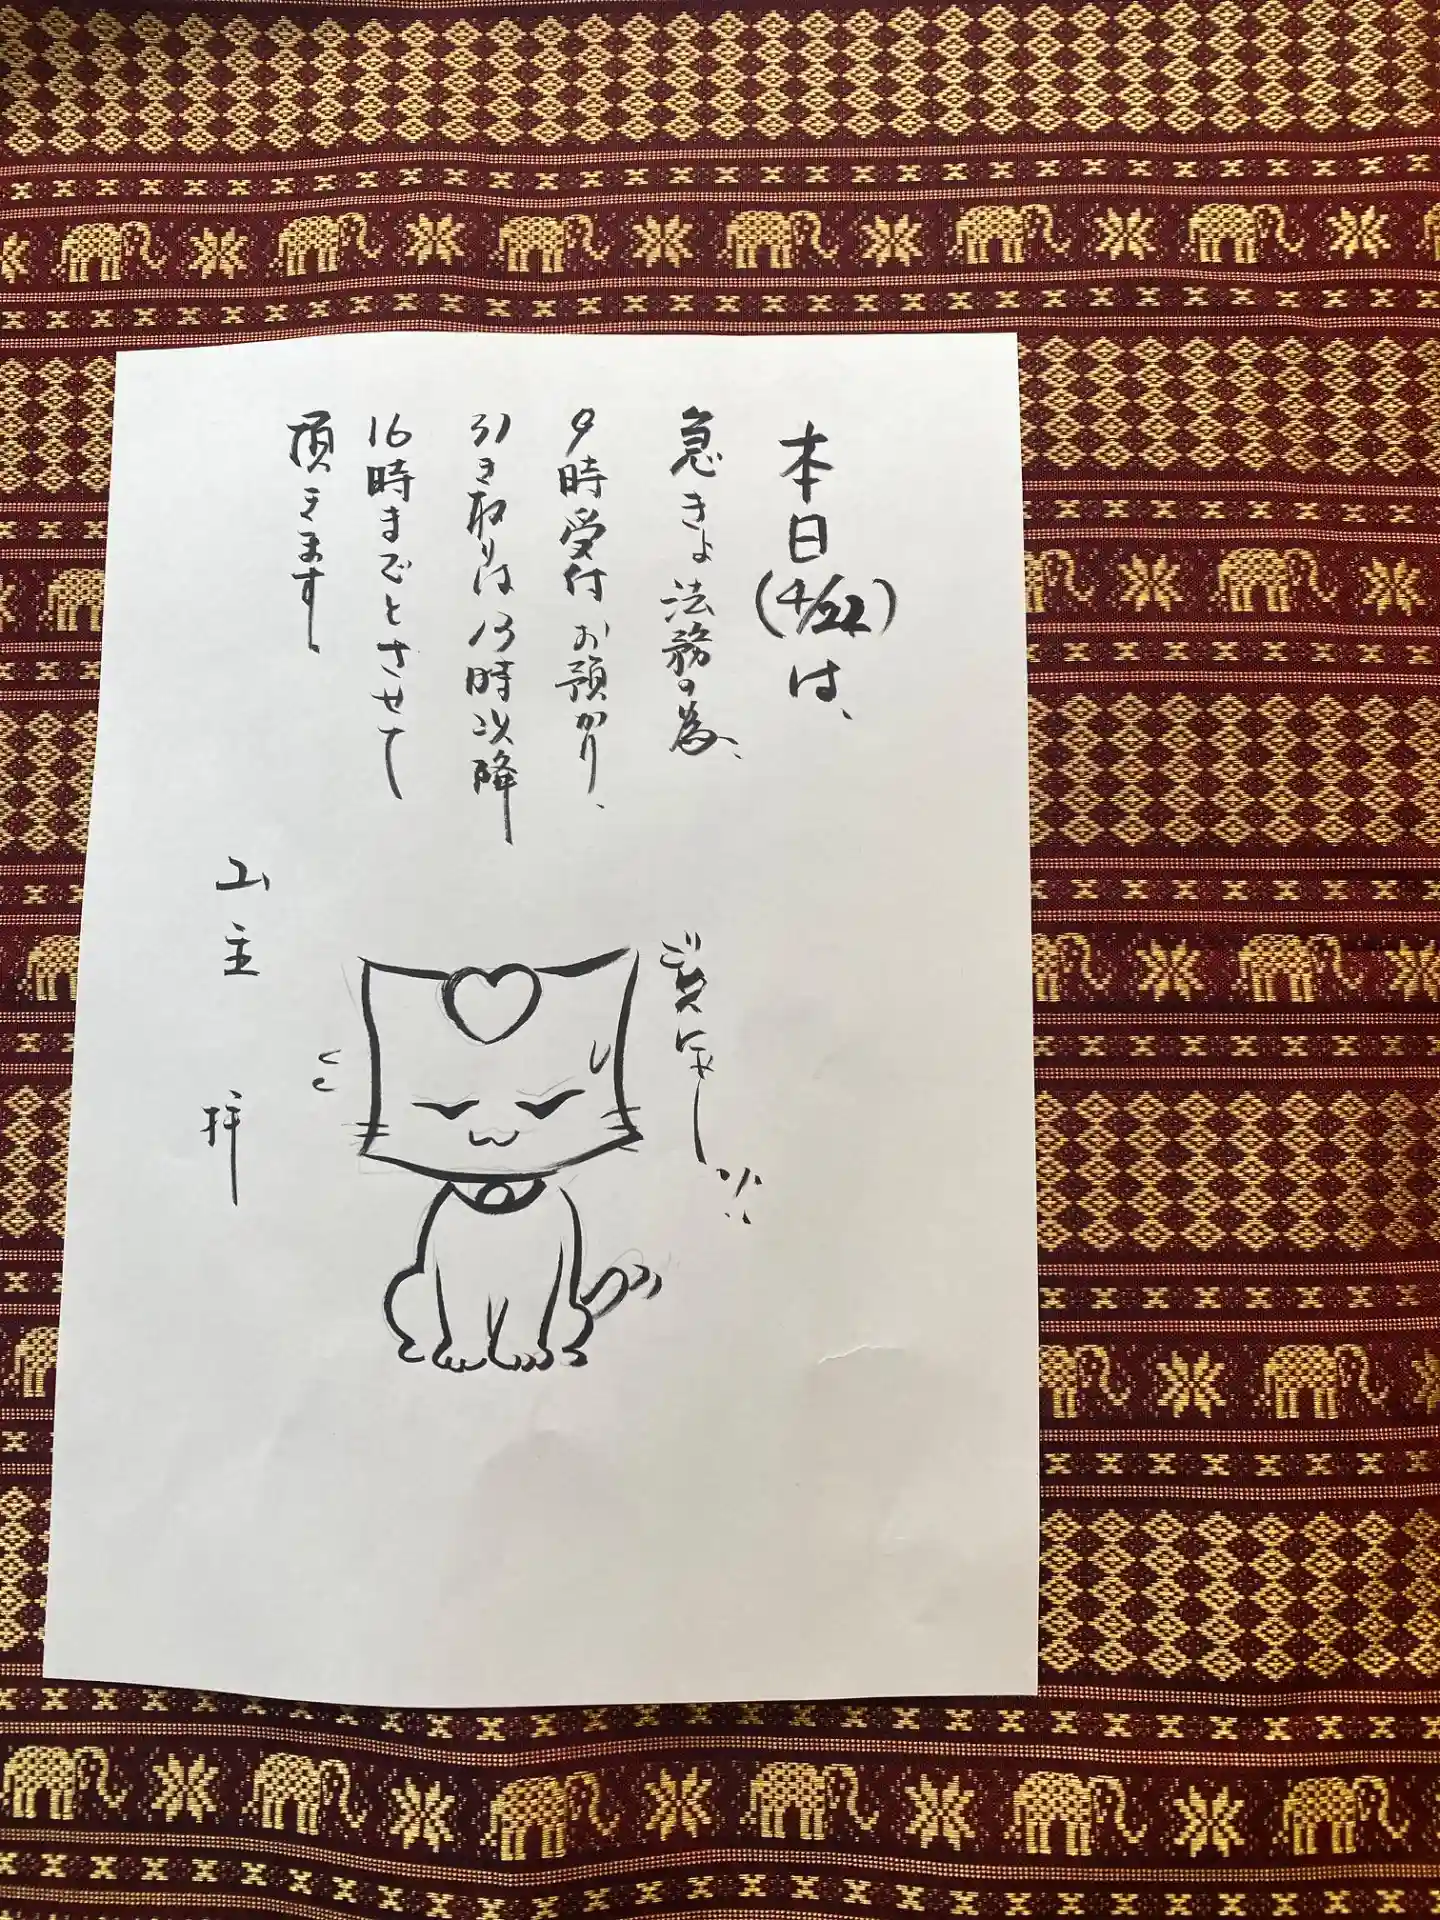 本日(4/22)は、
急きょ法務の為、
9時受付お預かり、
引き取りは13時以降
16時までとさせて
頂きます
山主 拝
ごめんにゃー!!